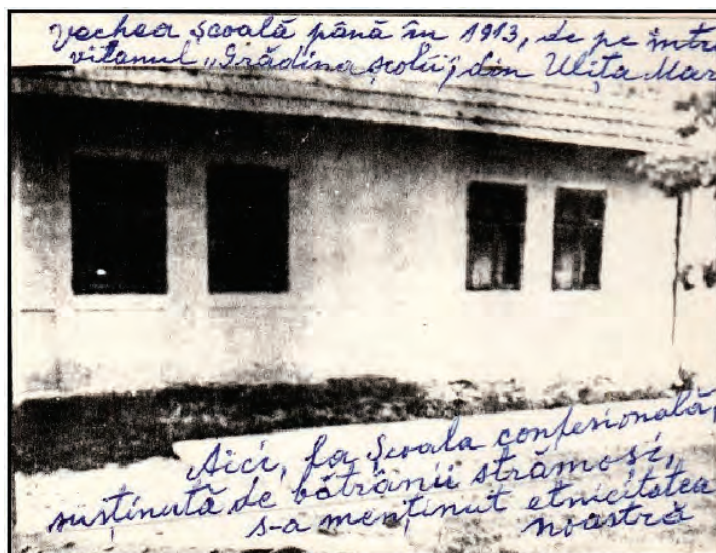 vechea școală până în 1913, de pe intra
vilanul „Grădina școlii”, din Ulița Mar
Aici, la Școala confesională,
susținută de bătrânii strămoși,
s-a menținut etnicitatea
noastră